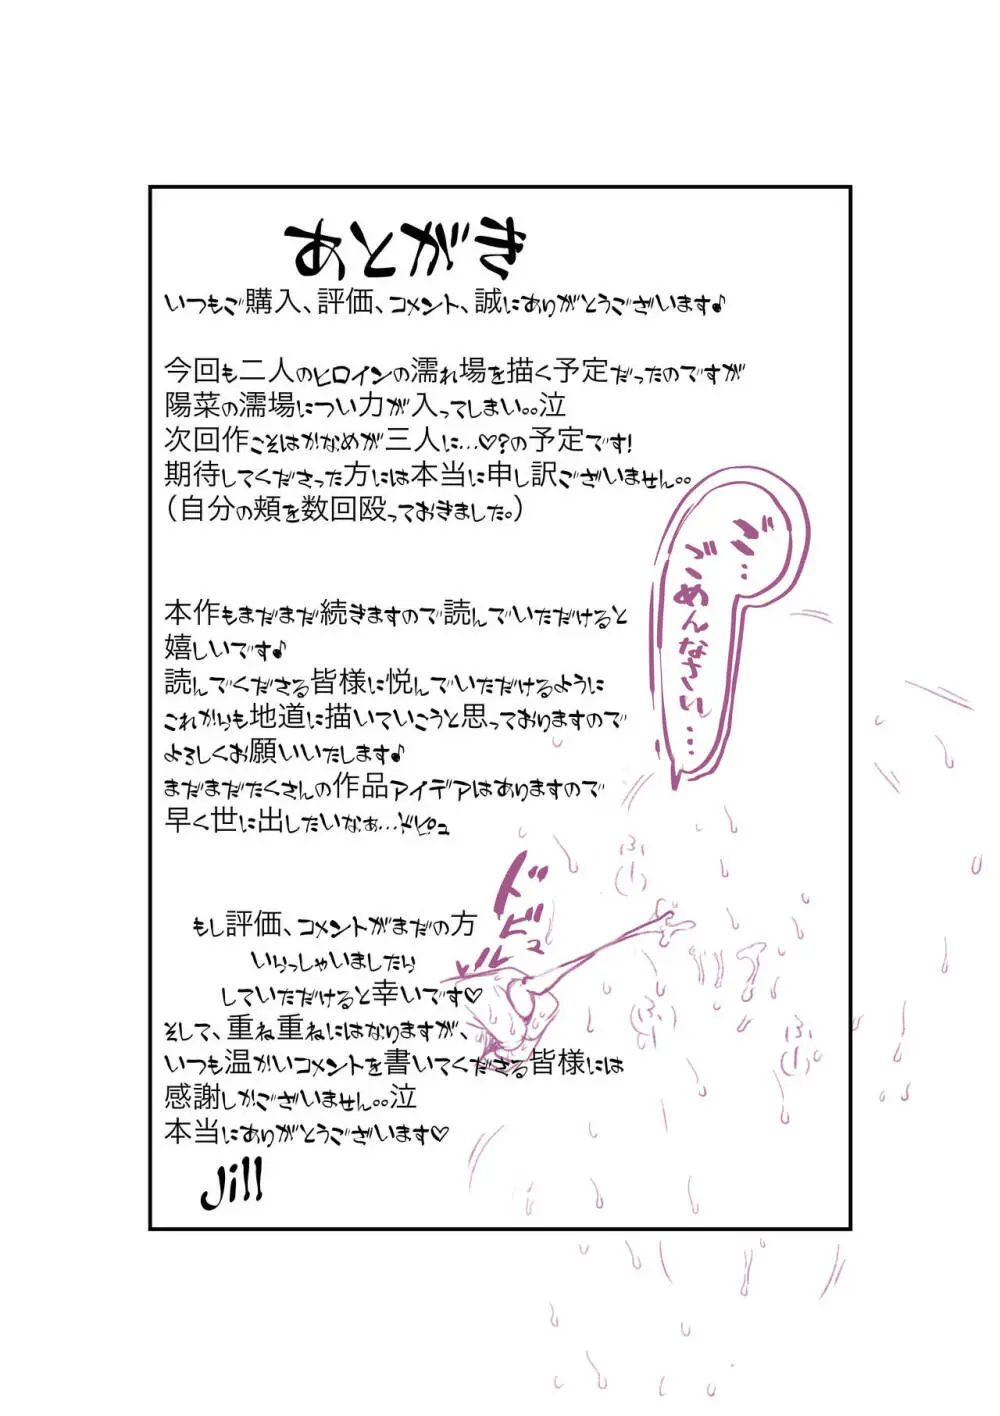 あとがき
いつもご購入、評価、コメント、誠にありがとうございます♪
今回も二人のヒロインの濡れ場を描く予定だったのですが
陽菜の濡場につい力が入ってしまい。。泣
次回作こそはかなめが三人に…♡?の予定です!
期待してくださった方には本当に申し訳ございません。。
(自分の頬を数回殴っておきました。)
ご…
ごめんなさい…
本作もまだまだ続きますので読んでいただけると
嬉しいです♪
読んでくださる皆様に悦んでいただけるように
これからも地道に描いていこうと思っておりますので
よろしくお願いいたします♪
まだまだたくさんの作品アイデアはありますので
早く世に出したいなぁ…ドピュ
ドピュ
ルル
ふぅー
ふぅー
ふぅー
もし評価、コメントがまだの方
いらっしゃいましたら
していただけると幸いです♡
そして、重ね重ねにはなりますが、
いつも温かいコメントを書いてくださる皆様には
感謝しかございません。。泣
本当にありがとうございます♡
Jill